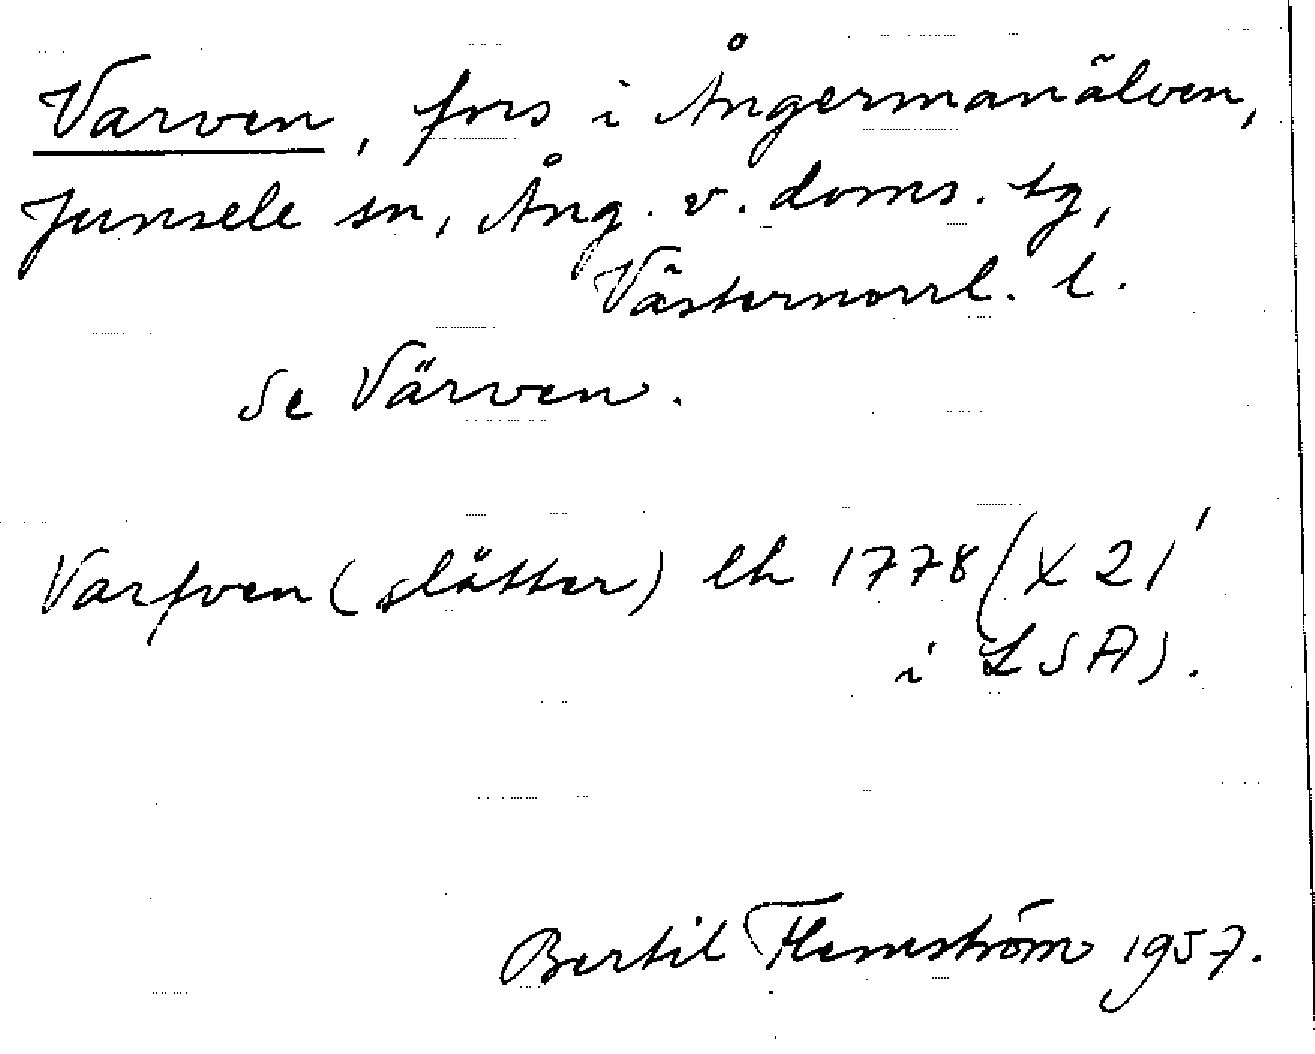 Varven, fors i Ångermanälven,
Junsele sn, Ång. v. doms. tg,
Västernorrl. l.
Se Värven.
Varfven (slåtter) lh 1778 (X 21
i LSA).
Bertil Flemström 1957.